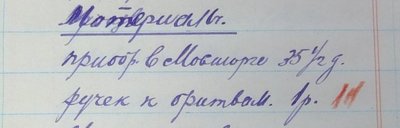 Материалы.
прибор в Мосторге 35 1/2 д.
ручек к бритвам. 1 р.